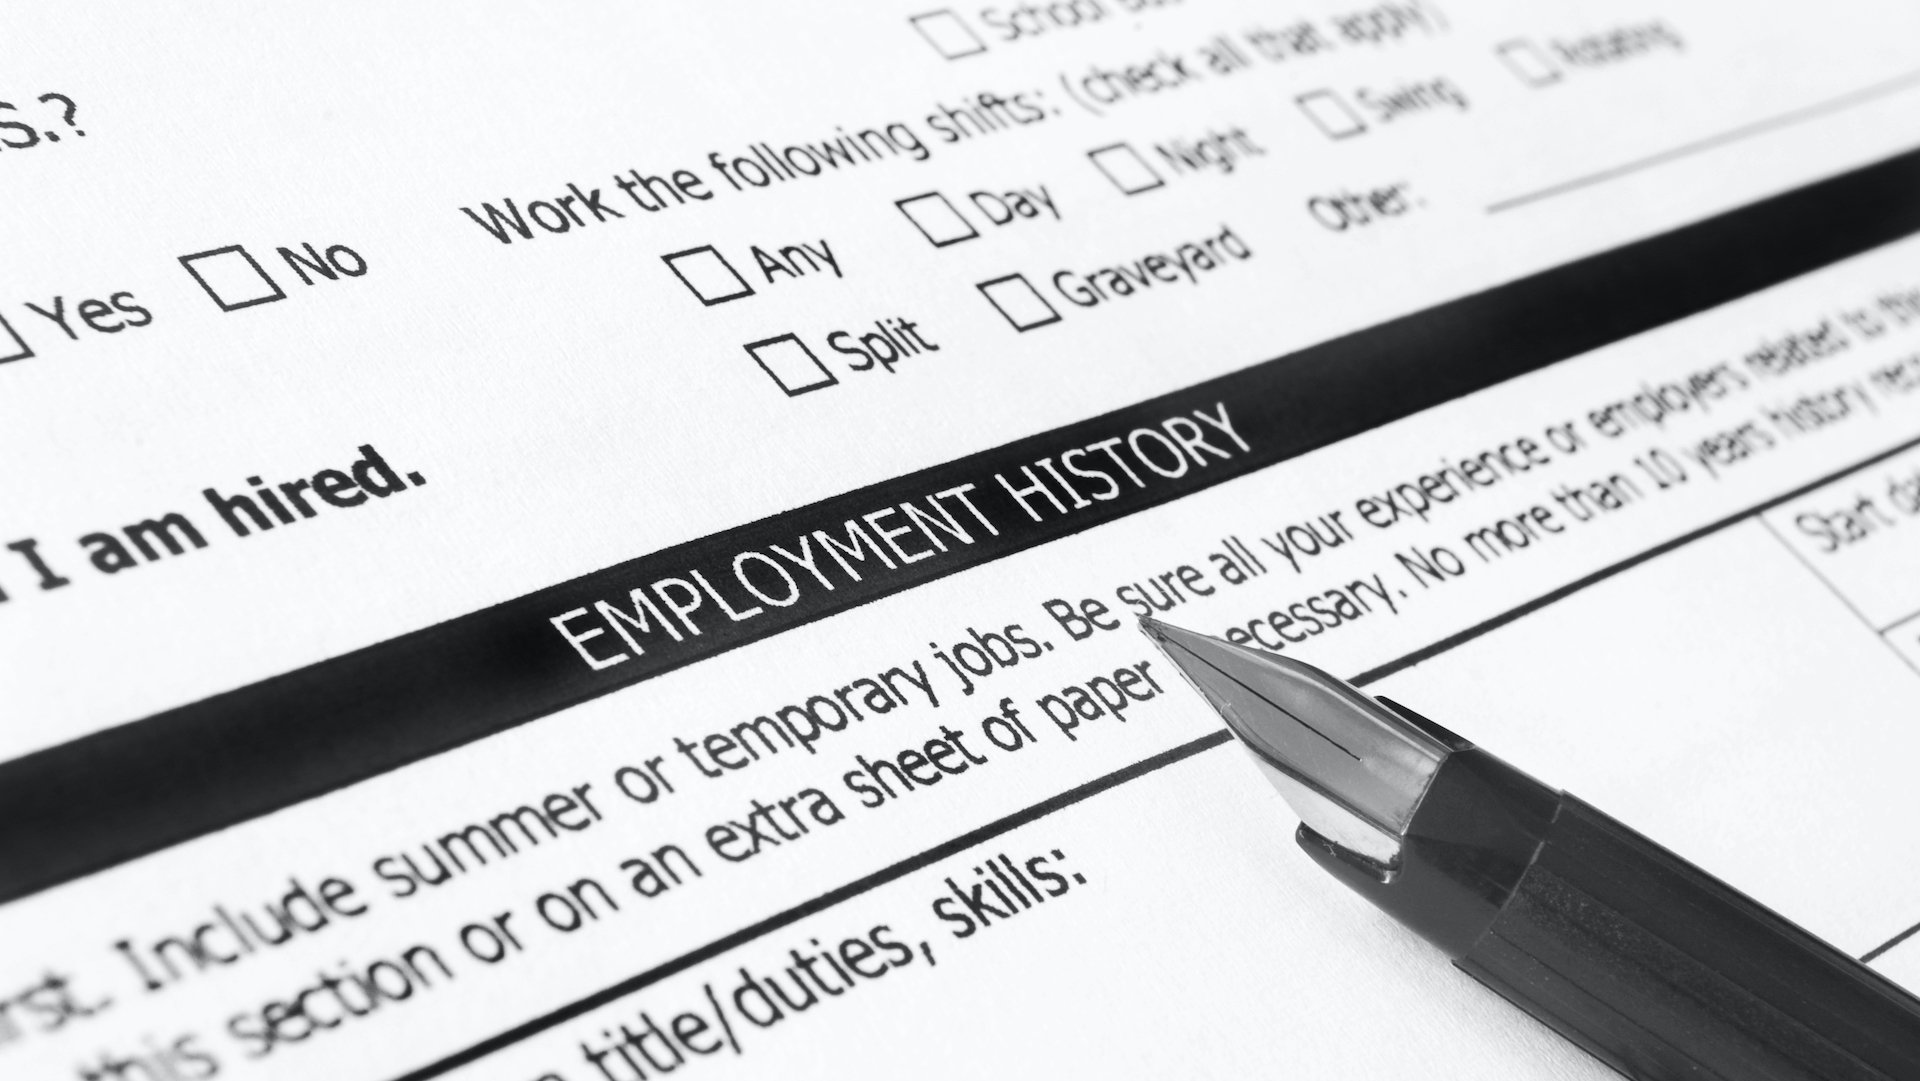 School
S.?
Work the following shifts: (check all that apply)
Yes No
Any Day Night Swing Rotating
Split Graveyard Other:
I am hired.
EMPLOYMENT HISTORY
Include summer or temporary jobs. Be sure all your experience or employers related to this
this section or on an extra sheet of paper ecessary. No more than 10 years history
title/duties, skills:
Start